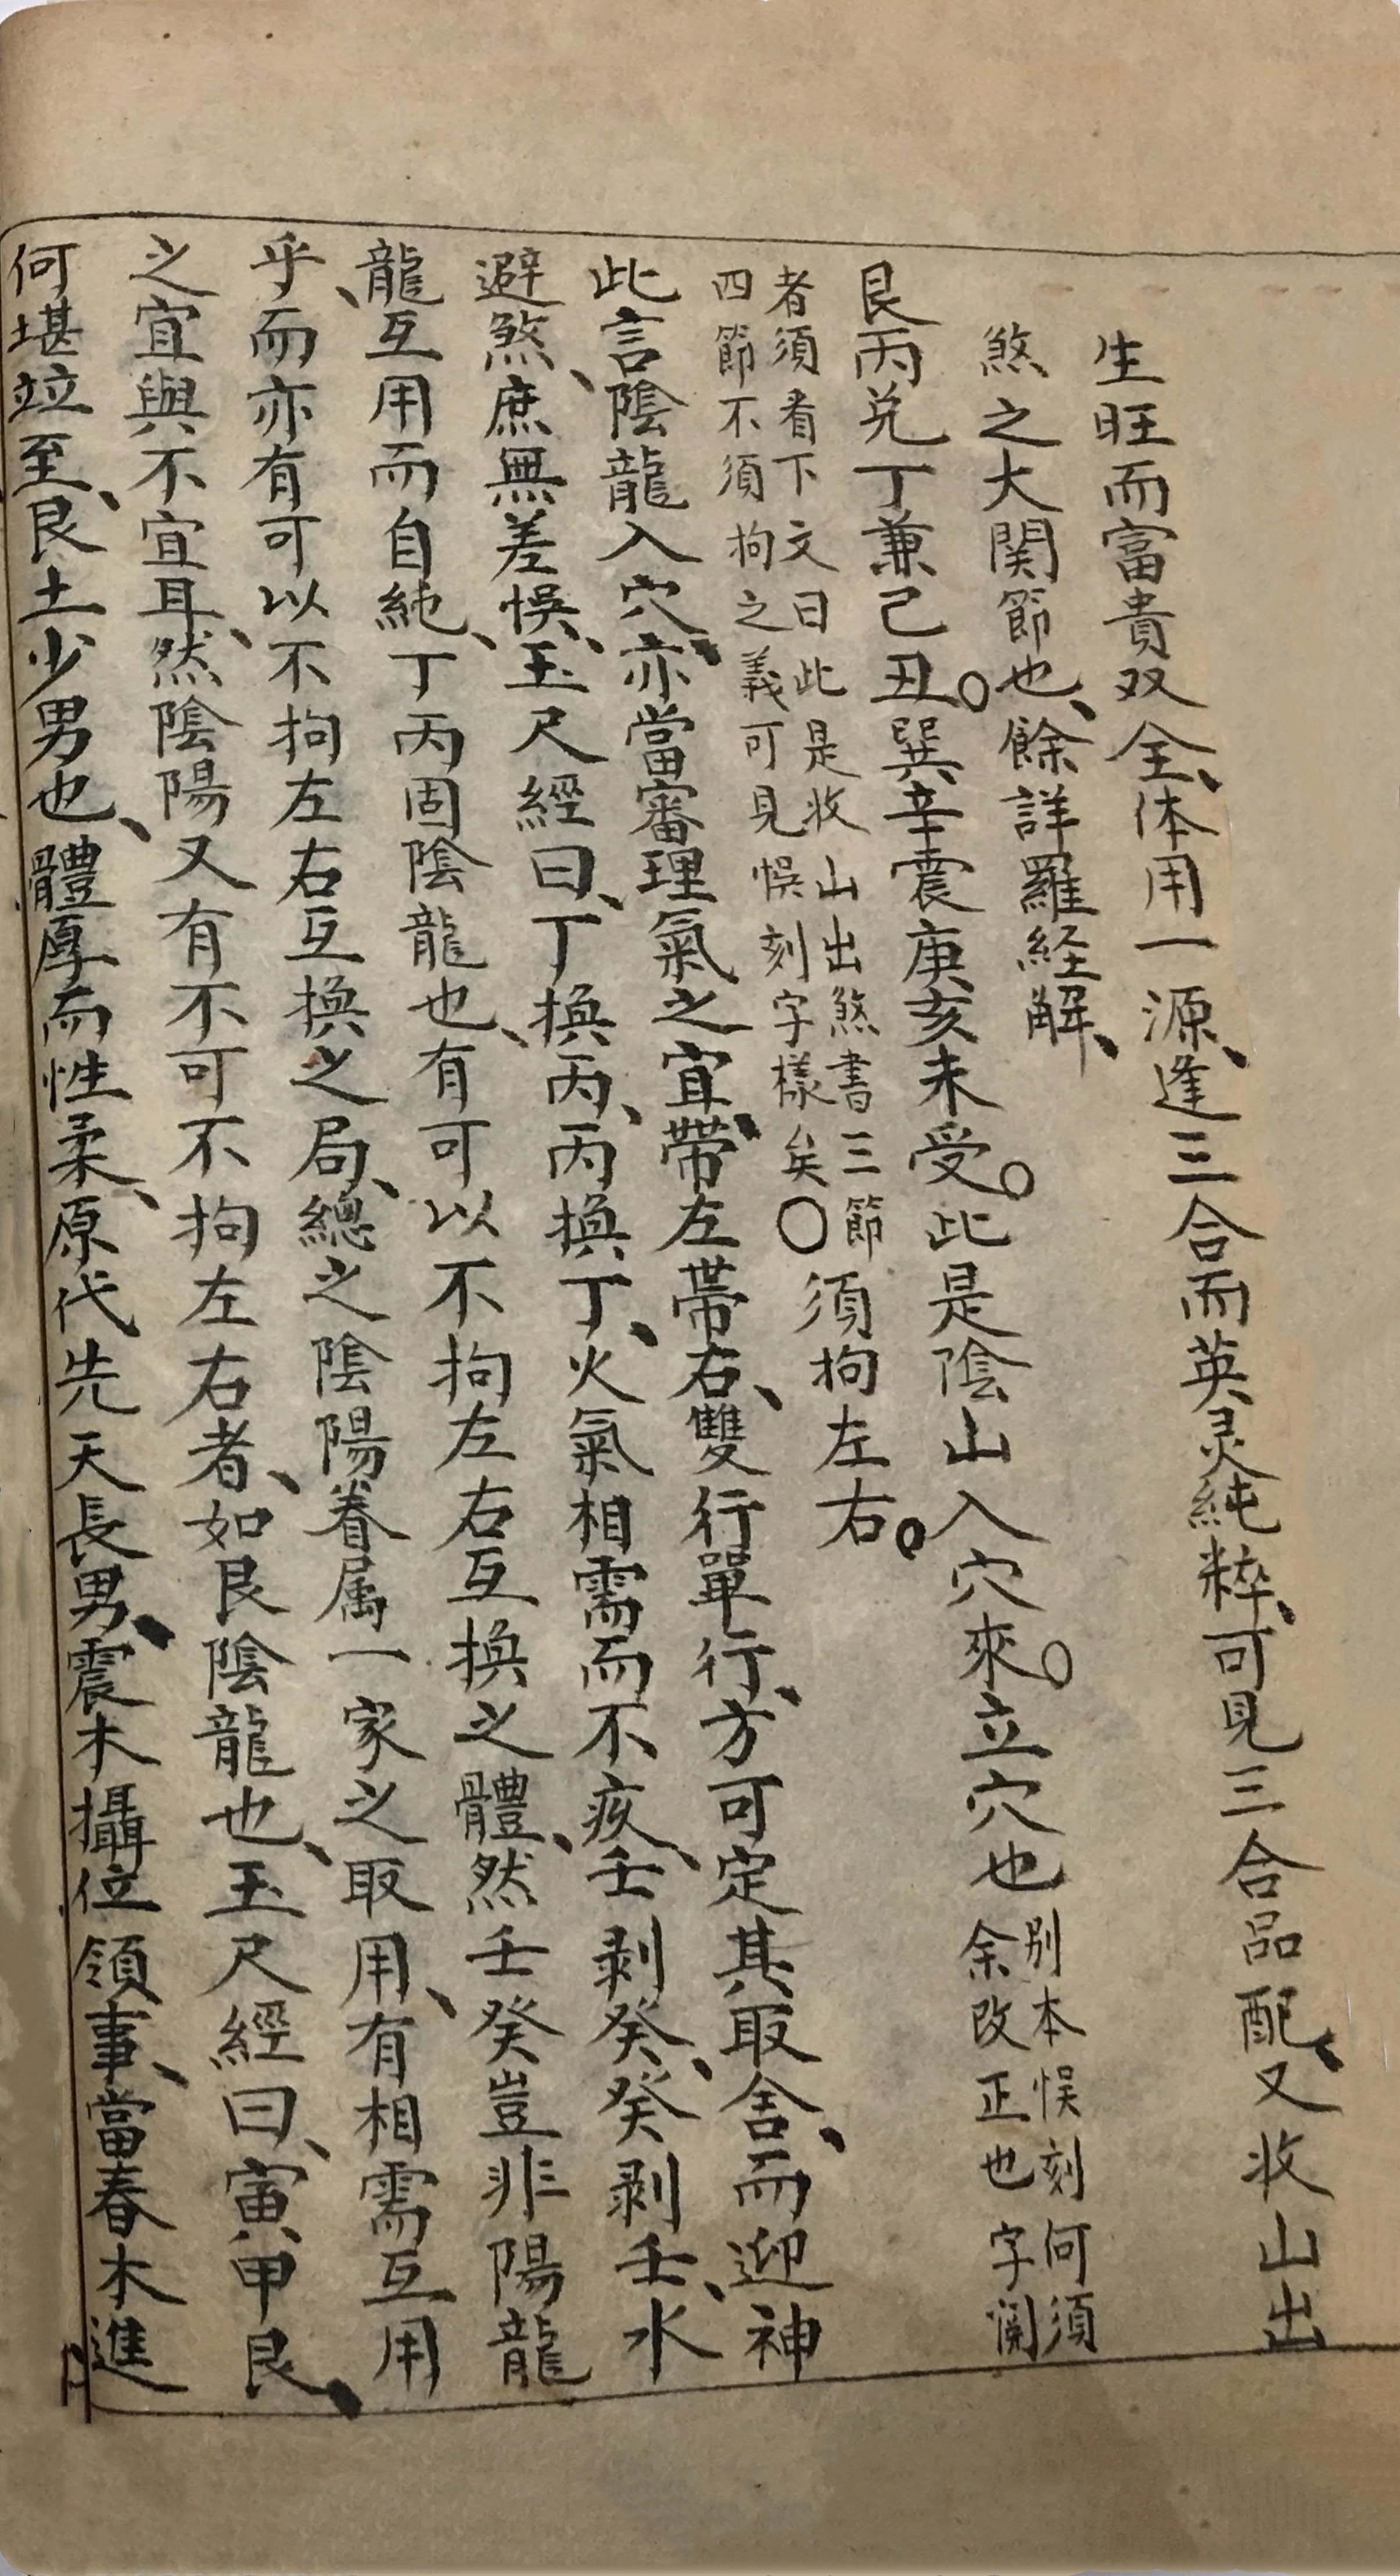 生旺而富貴双全、体用一源、逢三合而英灵純粹、可見三合品配、又收山出
煞之大関節也、餘詳羅経解、
艮丙兑丁兼己丑。巽辛震庚亥未受。此是陰山入穴來。立穴也別本悞刻何須
余改正也字閲
者須看下文曰此是收山出煞書三節
四節不須拘之義可見悞刻字様矣〇須拘左右。
此言陰龍入穴、亦當審理氣之宜、帶左帶右、雙行單行、方可定其取舍、而迎神
避煞、庶無差悞、玉尺經曰、丁換丙、丙換丁、火氣相需而不疚、壬剥癸、癸剥壬、水
龍互用而自純、丁丙固陰龍也、有可以不拘左右互換之體、然壬癸豈非陽龍
乎、而亦有可以不拘左右互換之局、總之陰陽眷属一家之取用、有相需互用
之宜與不宜耳、然陰陽又有不可不拘左右者、如艮陰龍也、玉尺經曰、寅甲艮、
何堪竝至、艮土少男也、體厚而性柔、原代先天長男、震木攝位領事、當春木進